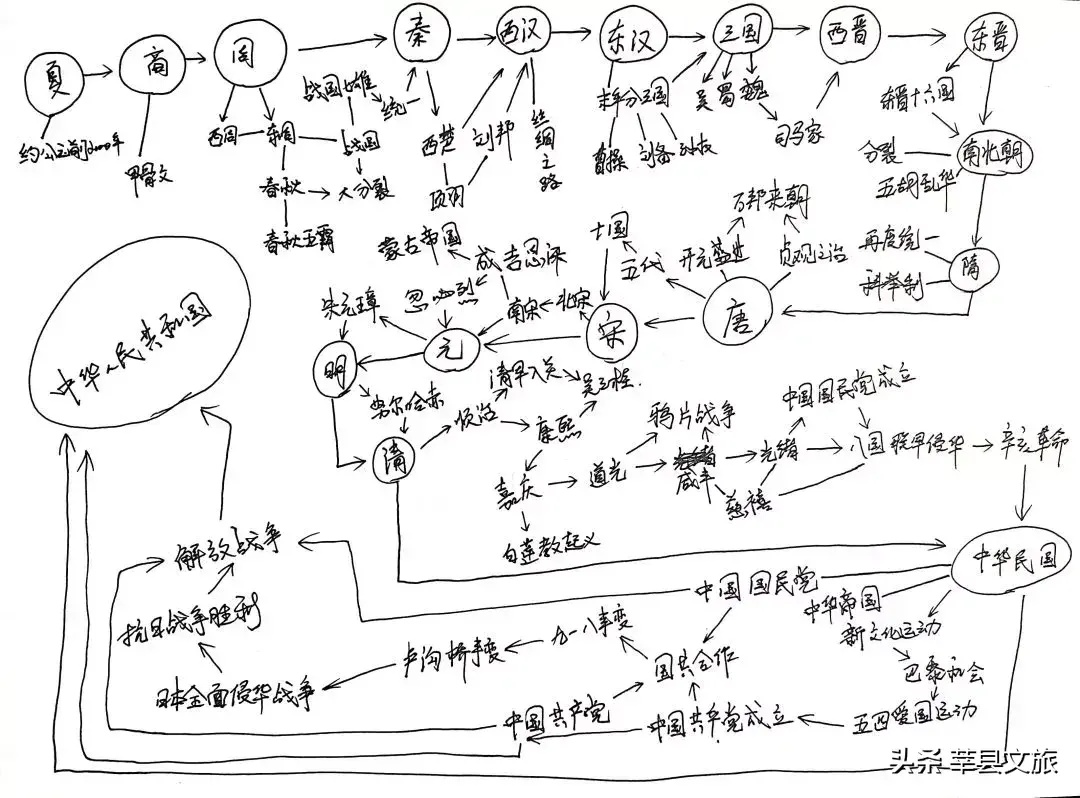 夏
商
周
秦
西汉
东汉
三国
西晋
东晋
约公元前2000年
甲骨文
西周
东周
战国七雄
统一
战国
春秋
大分裂
春秋五霸
西楚
刘邦
项羽
丝绸之路
末年分三国
曹操
刘备
孙权
吴 蜀 魏
司马家
东晋十六国
南北朝
分裂
五胡乱华
再度统一
科举制
隋
万邦来朝
开元盛世
贞观之治
唐
五代
十国
宋
北宋
南宋
蒙古帝国
成吉思汗
忽必烈
元
朱元璋
明
努尔哈赤
清
顺治
清军入关
吴三桂
康熙
嘉庆
白莲教起义
道光
鸦片战争
咸丰
慈禧
光绪
中国国民党成立
八国联军侵华
辛亥革命
中华民国
中国国民党
中华帝国
新文化运动
巴黎和会
五四爱国运动
中国共产党成立
中国共产党
国共合作
九一八事变
卢沟桥事变
日本全面侵华战争
抗日战争胜利
解放战争
中华人民共和国
头条 莘县文旅